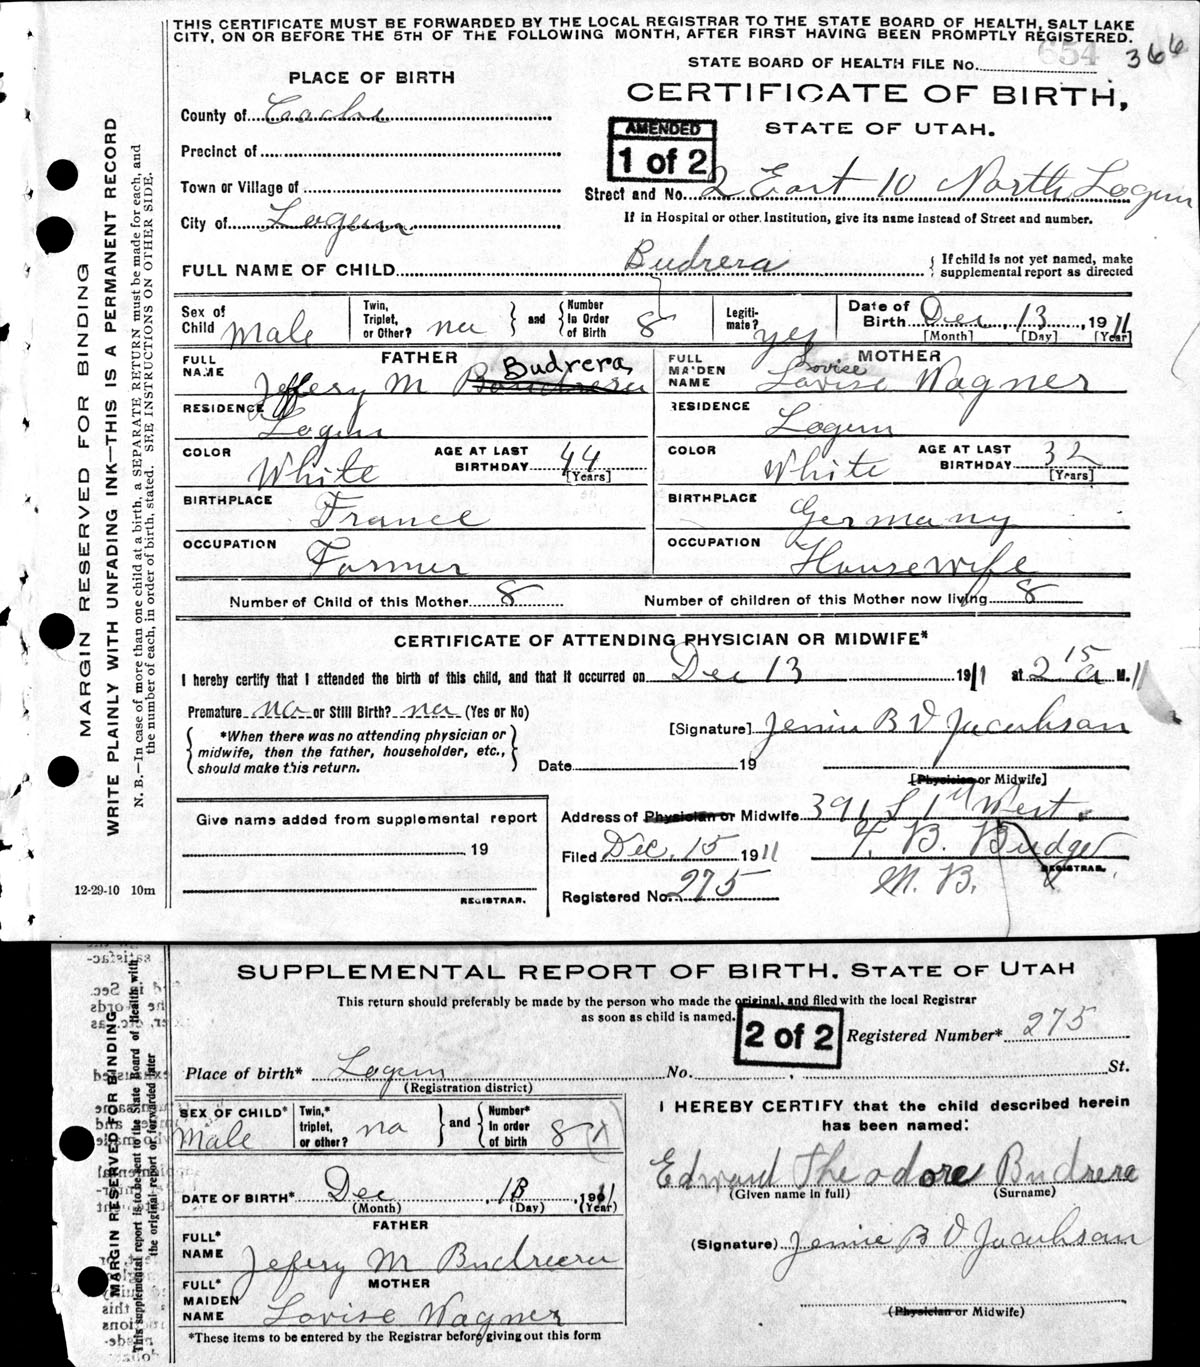 THIS CERTIFICATE MUST BE FORWARDED BY THE LOCAL REGISTRAR TO THE STATE BOARD OF HEALTH, SALT LAKE
CITY, ON OR BEFORE THE 5TH OF THE FOLLOWING MONTH, AFTER FIRST HAVING BEEN PROMPTLY REGISTERED.
654 366
STATE BOARD OF HEALTH FILE No.
PLACE OF BIRTH
CERTIFICATE OF BIRTH,
STATE OF UTAH.
County of Cache
AMENDED
1 of 2
Precinct of
Town or Village of
Street and No. 2 East 10 North Logan
City of Logan
If in Hospital or other Institution, give its name instead of Street and number.
FULL NAME OF CHILD Budrera { If child is not yet named, make supplemental report as directed
Sex of Child Male Twin, Triplet, or Other? no } and { Number In Order of Birth 8 Legiti-mate? yes Date of Birth Dec 13, 1911
[Month] [Day] [Year]
FATHER MOTHER
FULL NAME Jeffery M Budrera FULL MAIDEN NAME Lovise Lovise Wagner
RESIDENCE Logan RESIDENCE Logan
COLOR White AGE AT LAST BIRTHDAY 44 [Years] COLOR White AGE AT LAST BIRTHDAY 32 [Years]
BIRTHPLACE France BIRTHPLACE Germany
OCCUPATION Farmer OCCUPATION Housewife
Number of Child of this Mother 8 Number of children of this Mother now living 8
CERTIFICATE OF ATTENDING PHYSICIAN OR MIDWIFE*
I hereby certify that I attended the birth of this child, and that it occurred on Dec 13 1911 at 2 15 a M.
Premature no or Still Birth? no (Yes or No)
[Signature] Jennie B D Jacobson
{ *When there was no attending physician or midwife, then the father, householder, etc., should make this return. }
Date 19
[Physician or Midwife]
Give name added from supplemental report
19
REGISTRAR.
Address of Physician or Midwife 391 S 1st West
Filed Dec, 15 1911 T. B. Budge
REGISTRAR.
Registered No. 275 M. D.
12-29-10 10m
MARGIN RESERVED FOR BINDING
WRITE PLAINLY WITH UNFADING INK—THIS IS A PERMANENT RECORD
N. B.—In case of more than one child at a birth, a SEPARATE RETURN must be made for each, and
the number of each, in order of birth, stated. SEE INSTRUCTIONS ON OTHER SIDE.
SUPPLEMENTAL REPORT OF BIRTH, STATE OF UTAH
This return should preferably be made by the person who made the original, and filed with the local Registrar
as soon as child is named.
2 of 2
Registered Number* 275
Place of birth* Logan No. St.
(Registration district)
SEX OF CHILD* Male Twin,* triplet, or other? no } and { Number* In order of birth 8
I HEREBY CERTIFY that the child described herein
has been named:
Edward Theodore Budrera
(Given name in full) (Surname)
DATE OF BIRTH* Dec 13, 1911
(Month) (Day) (Year)
FATHER
FULL* NAME Jefery M Budreeru
(Signature) Jennie B D Jacobson
MOTHER
FULL* MAIDEN NAME Lovise Wagner
(Physician or Midwife)
*These items to be entered by the Registrar before giving out this form
MARGIN RESERVED FOR BINDING
This supplemental report is to be sent to the State Board of Health with
the original report or forwarded later